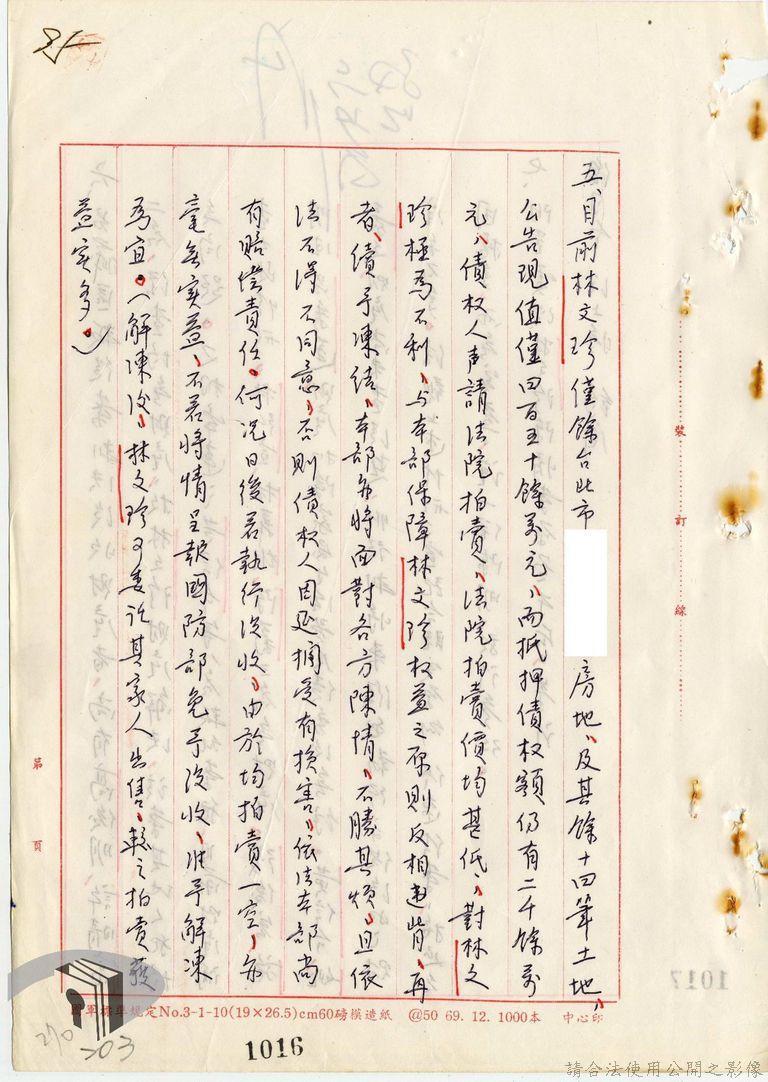 五、目前林文珍僅餘台北市
房地，及其餘十四筆土地，
公告現值僅四百五十餘萬元，而抵押債权額仍有二千餘萬
元，債权人声請法院拍賣，法院拍賣價均甚低，對林文
珍極為不利，与本部保障林文珍权益之原則反相違背，再
者，續予凍結，本部亦將面對各方陳情，不勝其煩，且依
法不得不同意，否則債权人因延擱受有損害，依法本部尚
有賠償責任。何況日後若執行沒收，由於均拍賣一空，亦
毫無實益，不若將情呈報國防部免予沒收，准予解凍
為宜。（解凍後，林文珍可委託其家人出售，較之拍賣獲
益實多。）
裝 訂 線
第 頁
國軍標準規定No.3-1-10(19×26.5)cm60磅模造紙 @50 69. 12. 1000本 中心印
1016
1017
203
請合法使用公開之影像